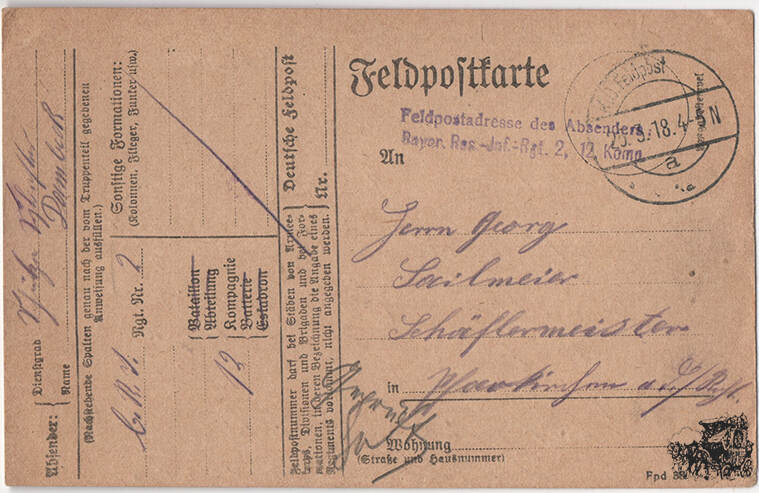 Feldpostkarte
K.D. Feldpost
25. 3. 18. 4-5 N
a
Feldpostadresse des Absenders:
Bayer. Res.-Inf.-Rgt. 2, 12. Komp.
An
Herrn Georg
Sailmeier
Schäflermeister
in Pfarrkirchen a. d./Rgt.
Wohnung
(Straße und Hausnummer)
Fpd
Absender:
Dienstgrad
Name Dambeck
(Nachstehende Spalten genau nach der vom Truppenteil gegebenen
Anweisung ausfüllen.)
Rgt. Nr. 2
12
Bataillon
Abteilung
Kompagnie
Batterie
Eskadron
Sonstige Formationen:
(Kolonnen, Flieger, Funker usw.)
Deutsche Feldpost
Nr.
Feldpostnummer darf bei Stäben von Armee-
korps, Divisionen und Brigaden und bei For-
mationen, in deren Bezeichnung die Angabe eines
Regiments vorkommt, nicht angegeben werden.